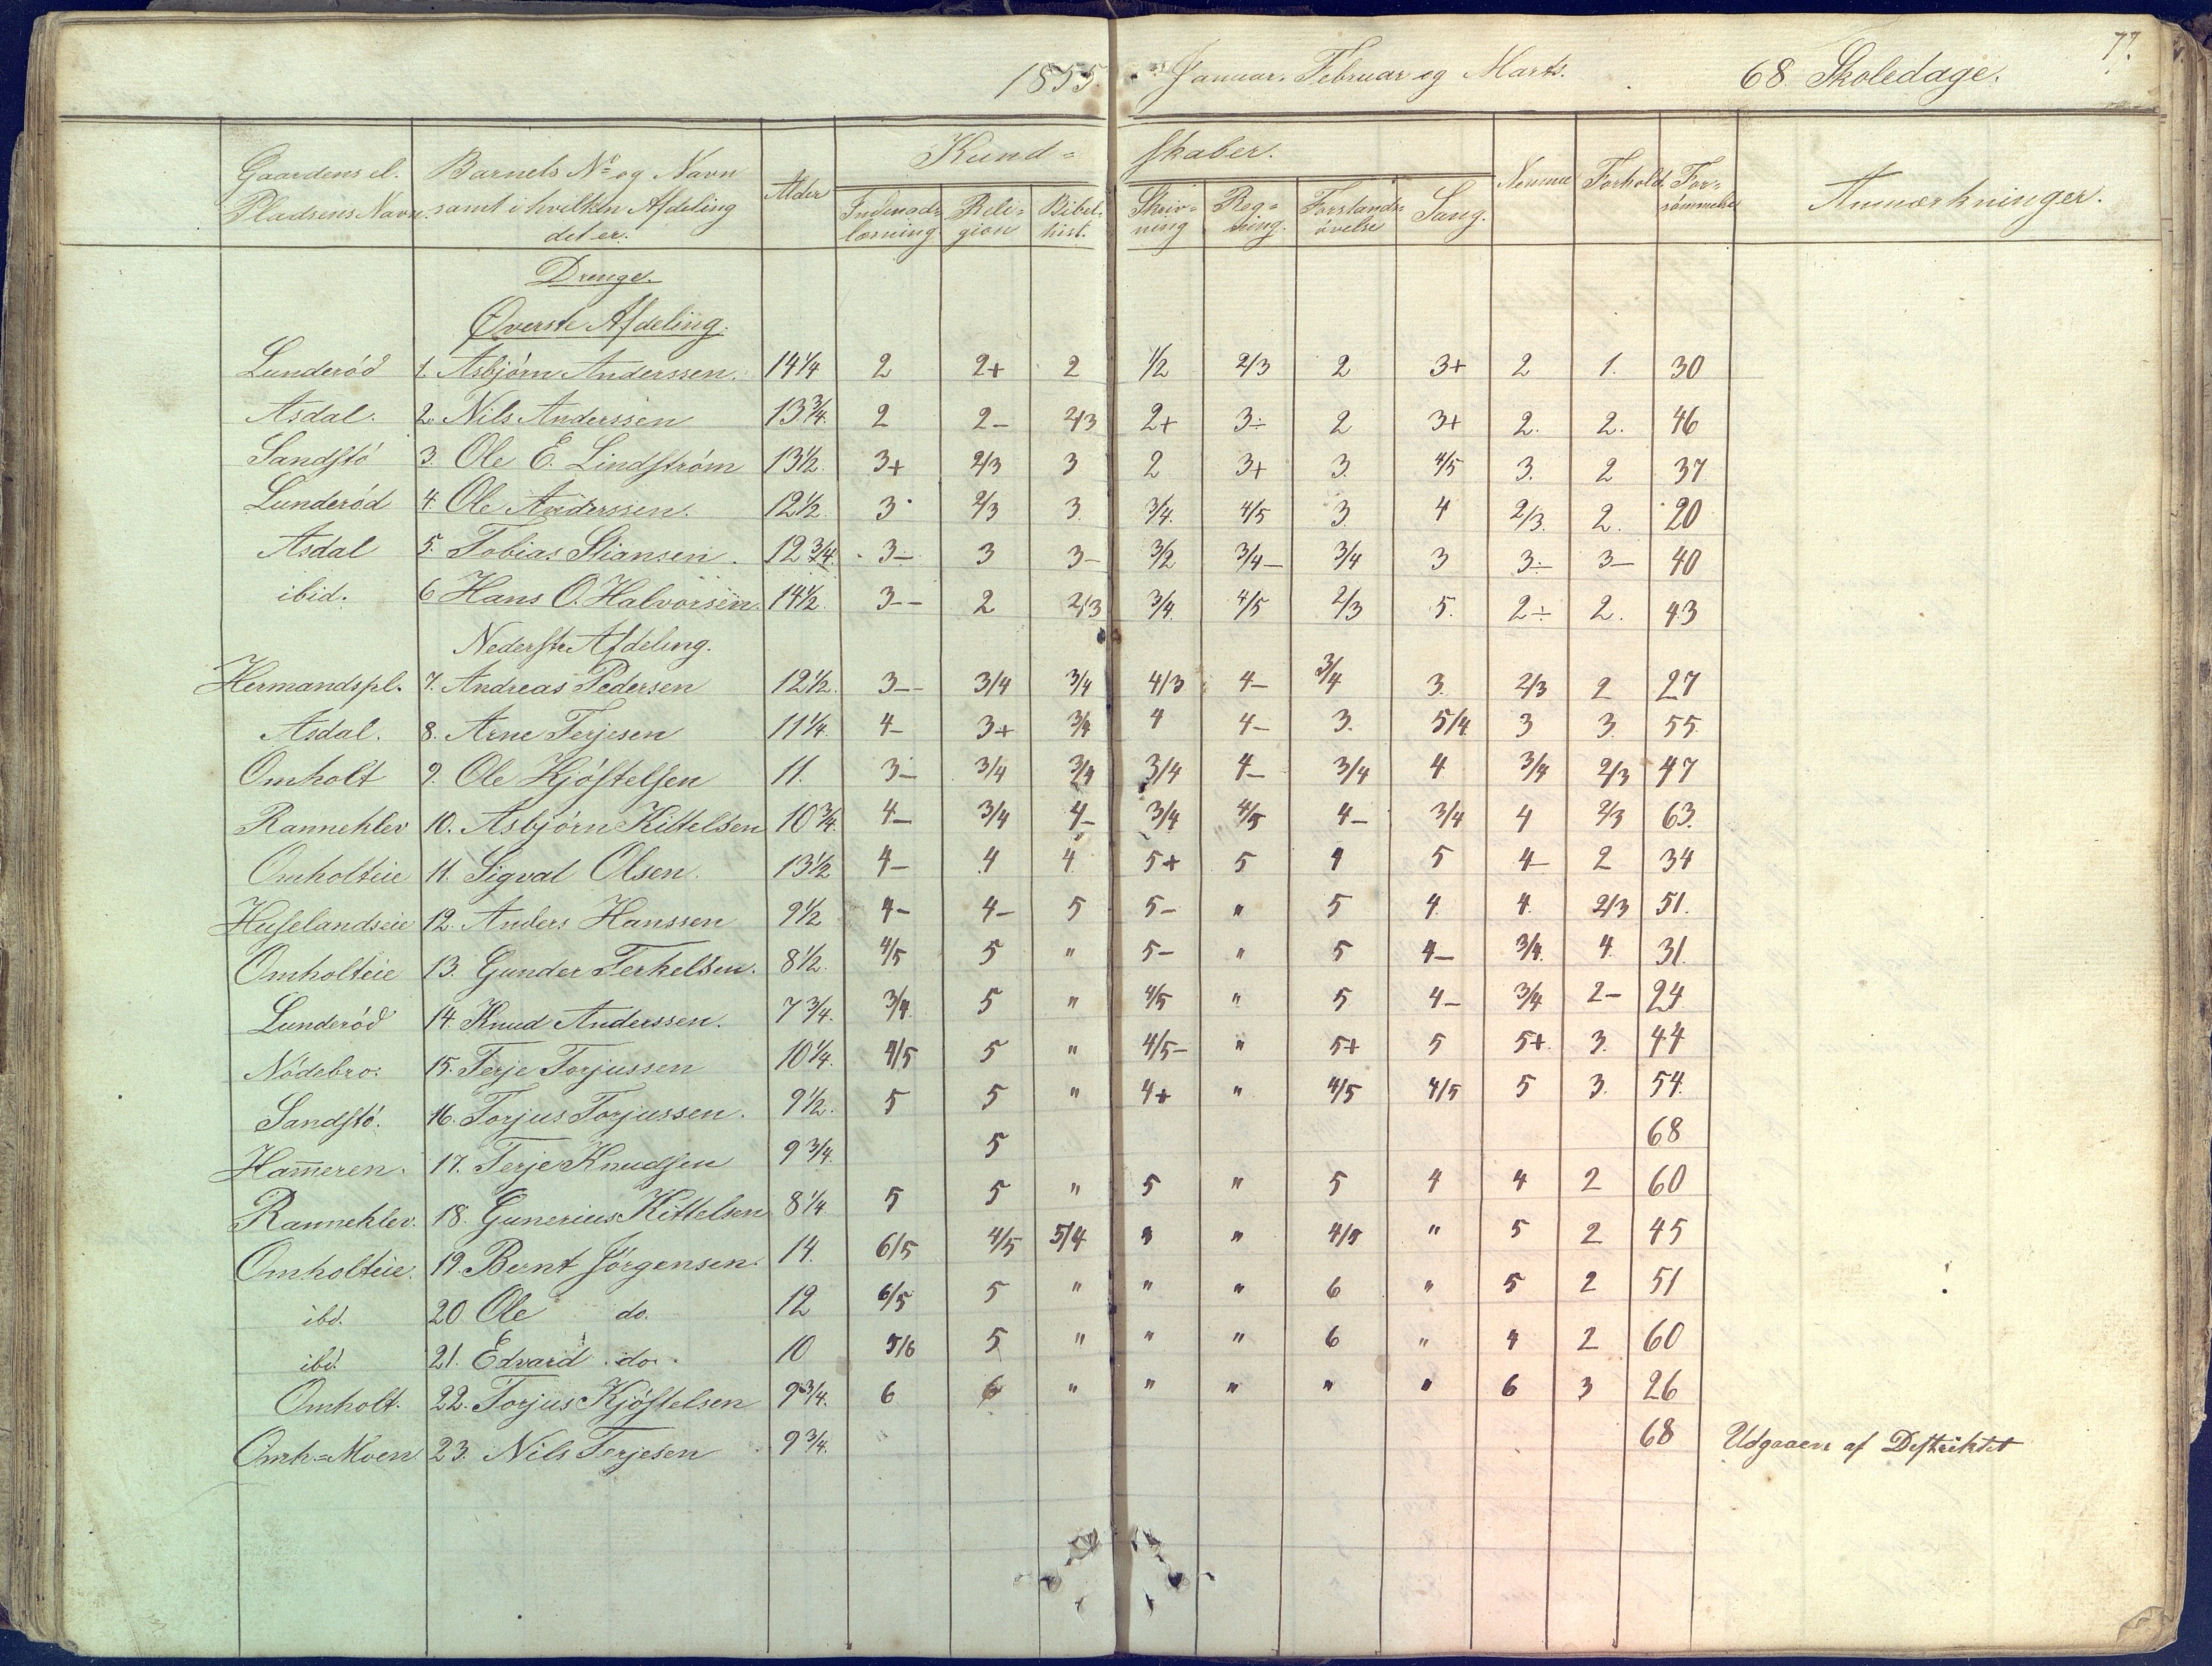 1855. Januar. Februar og Marts. 68. Skoledage. 77.
Kund= skaber.
Gaardens el. Pladsens Navn. Barnets No og Navn samt i hvilken Afdeling det er. Alder Indenads læsning Reli= gion Bibel= hist. Skriv= ning Reg= ning. Forstands= øvelse Sang. Nemme Forhold. For= sømmelse Anmærkninger.
Drenge.
Øverste Afdeling.
Lunderöd 1. Asbjörn Anderssen. 14 1/4 2 2+ 2 1/2 2/3 2 3+ 2 1. 30
Asdal. 2. Nils Anderssen 13 3/4. 2 2- 2/3 2+ 3÷ 2 3+ 2. 2. 46
Sandstö 3. Ole E. Lindström 13 1/2. 3+ 2/3 3 2 3+ 3. 4/5 3. 2 37
Lunderöd 4. Ole Anderssen. 12 1/2. 3 2/3 3. 3/4. 4/5 3. 4 2/3. 2. 20
Asdal 5. Tobias Stiansen. 12 3/4. 3- 3 3- 3/2 3/4- 3/4 3 3÷ 3- 40
ibid. 6 Hans O. Halvorsen. 14 1/2. 3-- 2 2/3 3/4. 4/5 2/3 5. 2÷ 2. 43
Nederste Afdeling.
Hermandspl. 7. Andreas Pedersen 12 1/2. 3-- 3/4 3/4 4/3 4- 3/4 3. 2/3 2 27
Asdal. 8. Arne Terjesen 11 1/4. 4- 3+ 3/4 4 4- 3. 5/4 3 3. 55
Omholt 9. Ole Kjöstelsen 11. 3- 3/4 3/4 3/4 4- 3/4 4 3/4 2/3 47
Rannehlev 10. Asbjörn Kittelsen 10 3/4. 4- 3/4 4- 3/4 4/5 4- 3/4 4 2/3 63.
Omholteie 11. Sigval Olsen. 13 1/2 4- 4 4 5+ 5 4 5 4- 2 34
Huselandseie 12. Anders Hanssen 9 1/2 4- 4- 5 5- " 5 4 4. 2/3 51.
Omholteie 13. Gunder Terkelsen. 8 1/2. 4/5 5 " 5- " 5 4- 3/4. 4. 31.
Lunderöd 14. Knud Anderssen. 7 3/4. 3/4. 5 " 4/5 " 5 4- 3/4 2- 24
Nödebro. 15. Terje Torjussen 10 1/4. 4/5 5 " 4/5- " 5+ 5 5+ 3. 44
Sandstö. 16. Torjus Torjussen. 9 1/2. 5 5 " 4+ " 4/5 4/5 5 3. 54.
Ham̅eren. 17. Terje Knudsen 9 3/4. 5 68
Rannehlev. 18. Gunerius Kittelsen 8 1/4 5 5 " 5 " 5 4 4 2 60
Omholteie. 19. Bernt Jörgensen. 14. 6/5 4/5 5/4 " " 4/5 " 5 2 45
ibd. 20. Ole do. 12 6/5 5 " " " 6 " 5 2 51
ibd. 21. Edvard do. 10 5/6 5 " " " 6 " 4 2 60
Omholt. 22. Torjus Kjöstelsen 9 3/4. 6 6 " " " " " 6 3 26
Omh=Moen 23. Nils Terjesen 9 3/4. 68 Udgaaen af Destriktet